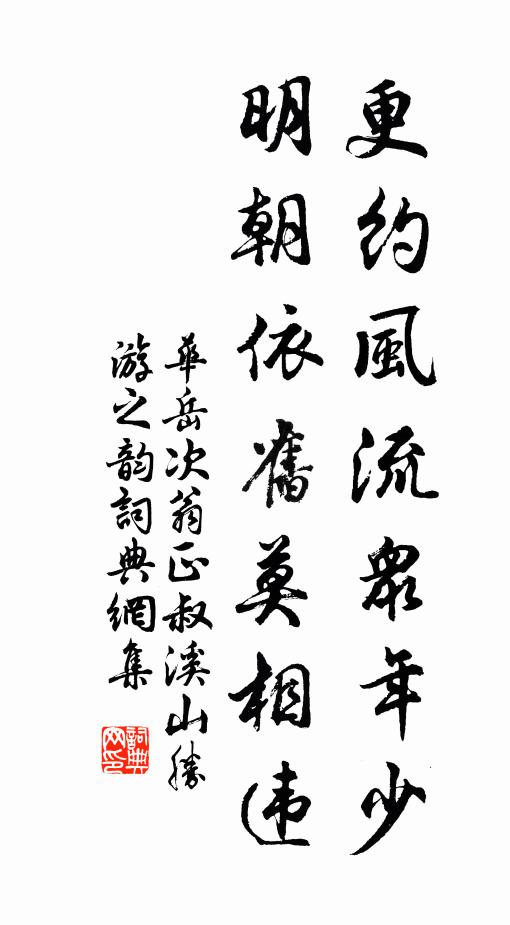 更约風流衆年少
明朝依舊莫相违
華岳次翁正叔溪山勝
游之韵詞典網集
詞典网印